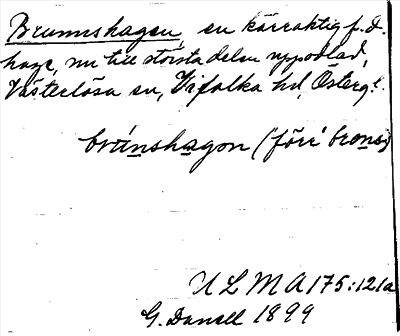 Brunnshagen, en kärraktig f.d.
hage, nu till största delen uppodlad,
Västerlösa sn, Vifolka hd, Östergl.
brúnshagon (förr brons)
ULMA 175:121a
G. Danell 1899